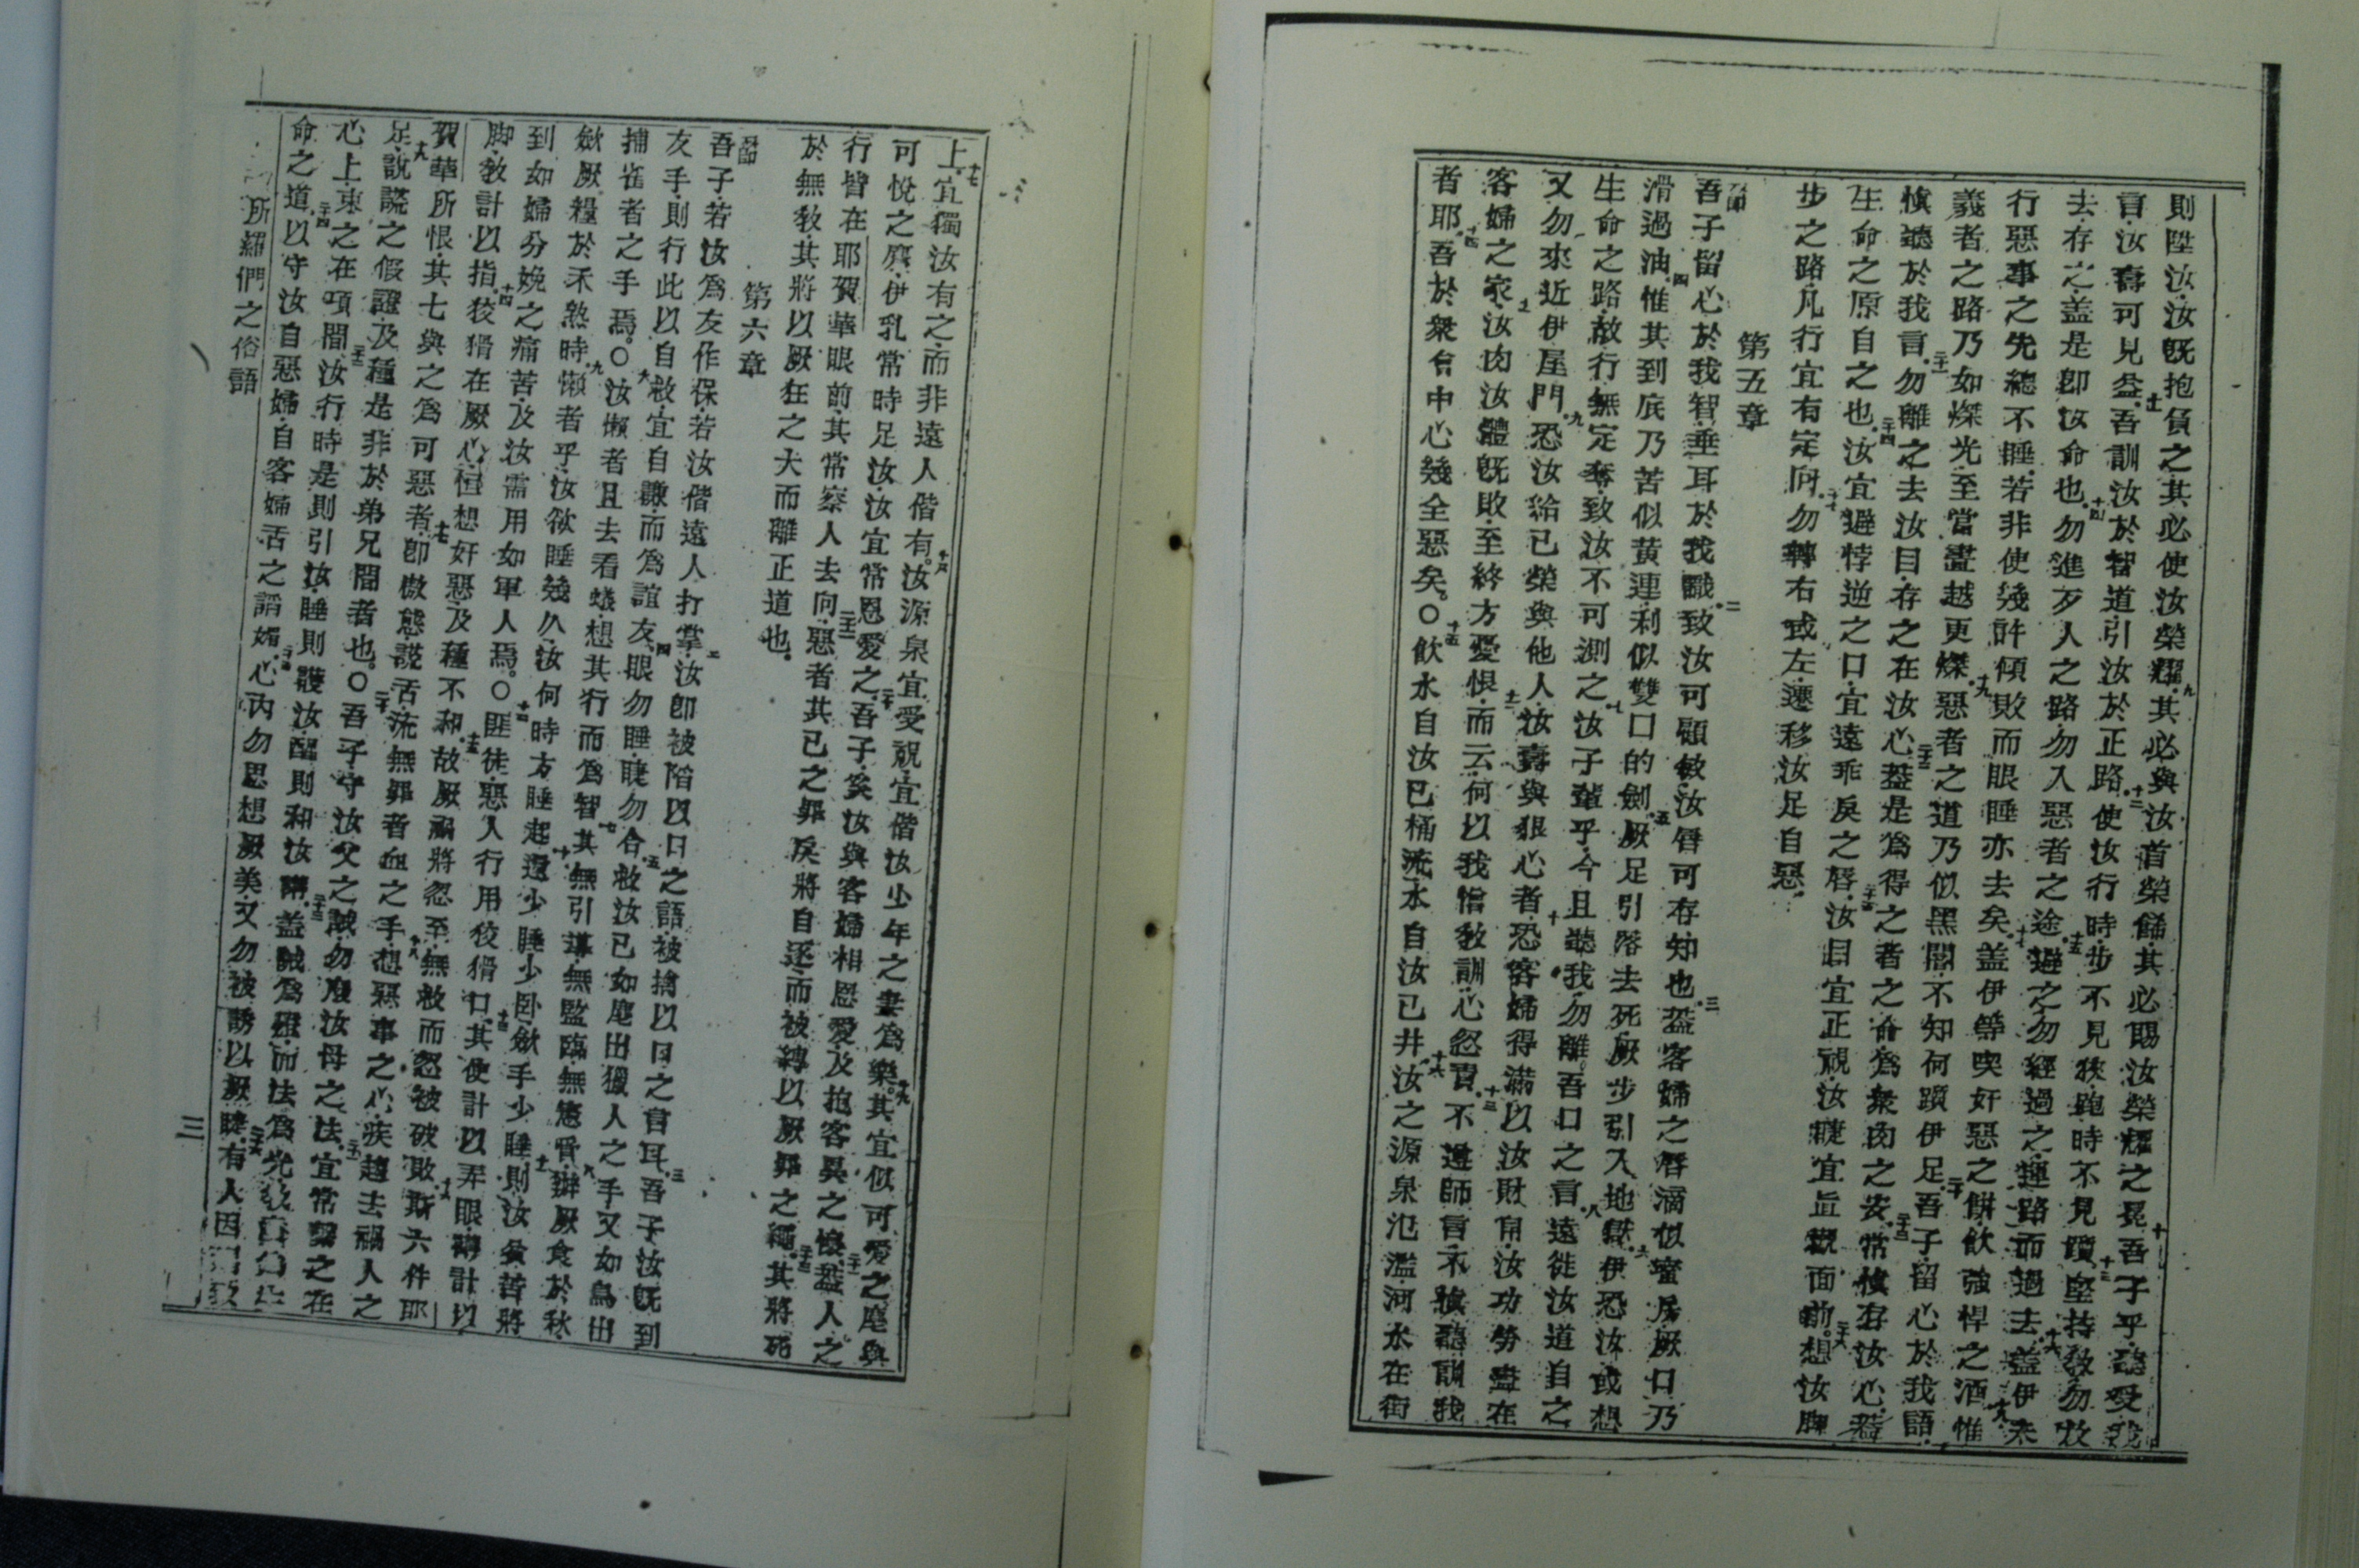 則陞汝汝旣抱負之其必使汝榮耀九其必與汝首榮飾其必賜汝榮耀之冕十吾子乎聽受我
言汝壽可見益十一吾訓汝於智道引汝於正路十二使汝行時步不見狹跑時不見躓十三堅持敎勿放
去存之盖是卽汝命也十四勿進歹人之路勿入惡者之途十五避之勿經過之運路而過去十六盖伊未
行惡事之先總不睡若非使幾許傾敗而眼睡亦去矣十七盖伊等喫奸惡之餠飲強悍之酒十八惟
義者之路乃如燦光至當晝越更燦十九惡者之道乃似黑闇不知何躓伊足二十吾子留心於我語
愼聽於我言二十一勿離之去汝目存之在汝心二十二葢是爲得之者之命爲衆肉之安二十三常愼存汝心葢
生命之原自之也二十四汝宜避悖逆之口宜遠乖戾之唇二十五汝目宜正視汝睫宜直觀面前二十六想汝脚
步之路凡行宜有定向二十七勿轉右或左遷移汝足自惡
第五章
吾子留心於我智垂耳於我識二致汝可顧敏汝唇可存知也三葢客婦之唇滴似蜜房厥口乃
滑過油四惟其到底乃苦似黃連利似雙口的劍五厥足引落去死厥步引入地獄六伊恐汝或想
生命之路故行無定奪致汝不可測之七汝子輩乎今且聽我勿離吾口之言八遠徙汝道自之
又勿來近伊屋門九恐汝給已榮與他人汝壽與狠心者十恐客婦得滿以汝財帛汝功勞盡在
客婦之家十一汝肉汝體旣敗至終方憂恨十二而云何以我憎敎訓心忽責十三不遵師言不愼聽訓我
者耶十四吾於衆台中心幾全惡矣○十五飲水自汝已桶流水自汝已井十六汝之源泉氾濫河水在街
上十七宜獨汝有之而非遠人偕有十八汝源泉宜受祝宜偕汝少年之妻爲樂十九其宜似可愛之麀與
可悅之麇伊乳常時足汝汝宜常恩愛之二十吾子奚汝與客婦相恩愛及抱客異之懷二十一葢人之
行皆在耶賀華眼前其常察人去向二十二惡者其已之罪戾將自逐而被縛以厥罪之繩二十三其將死
於無敎其將以厥狂之大而離正道也
第六章
吾子若汝爲友作保若汝偕遠人打掌二汝卽被陷以口之語被擒以口之言耳三吾子汝旣到
友手則行此以自救宜自謙而爲誼友四眼勿睡睫勿合五救汝已如麀出獵人之手又如鳥出
捕雀者之手焉○六汝懶者且去看蟻想其行而爲智七其無引導無監臨無憲胥八辦厥食於秋
斂厥糧於禾熟時九懶者乎汝欲睡幾久汝何時方睡起十還少睡少臥斂手少睡十一則汝貧苦將
到如婦分娩之痛苦及汝需用如軍人焉○十二匪徒惡人行用狡猾口十三其使計以弄眼轉計以
脚敎計以指十四狡猾在厥心恒想奸惡及種不和十五故厥禍將忽至無救而忽被破敗十六斯六件耶
賀華所恨其七與之爲可惡者十七卽傲態謊舌流無罪者血之手十八想惡事之心疾趨去禍人之
足十九說謊之假證及種是非於弟兄間者也○二十吾子守汝父之誡勿廢汝母之法二十一宜常繫之在
心上束之在項間二十二汝行時是則引汝睡則護汝醒則和汝講二十三盖誡爲燈而法爲光
命之道二十四以守汝自惡婦自客婦舌之諂媚二十五心內勿思想厥美又勿被誘以厥睫二十六有人因
所羅們之俗語
三